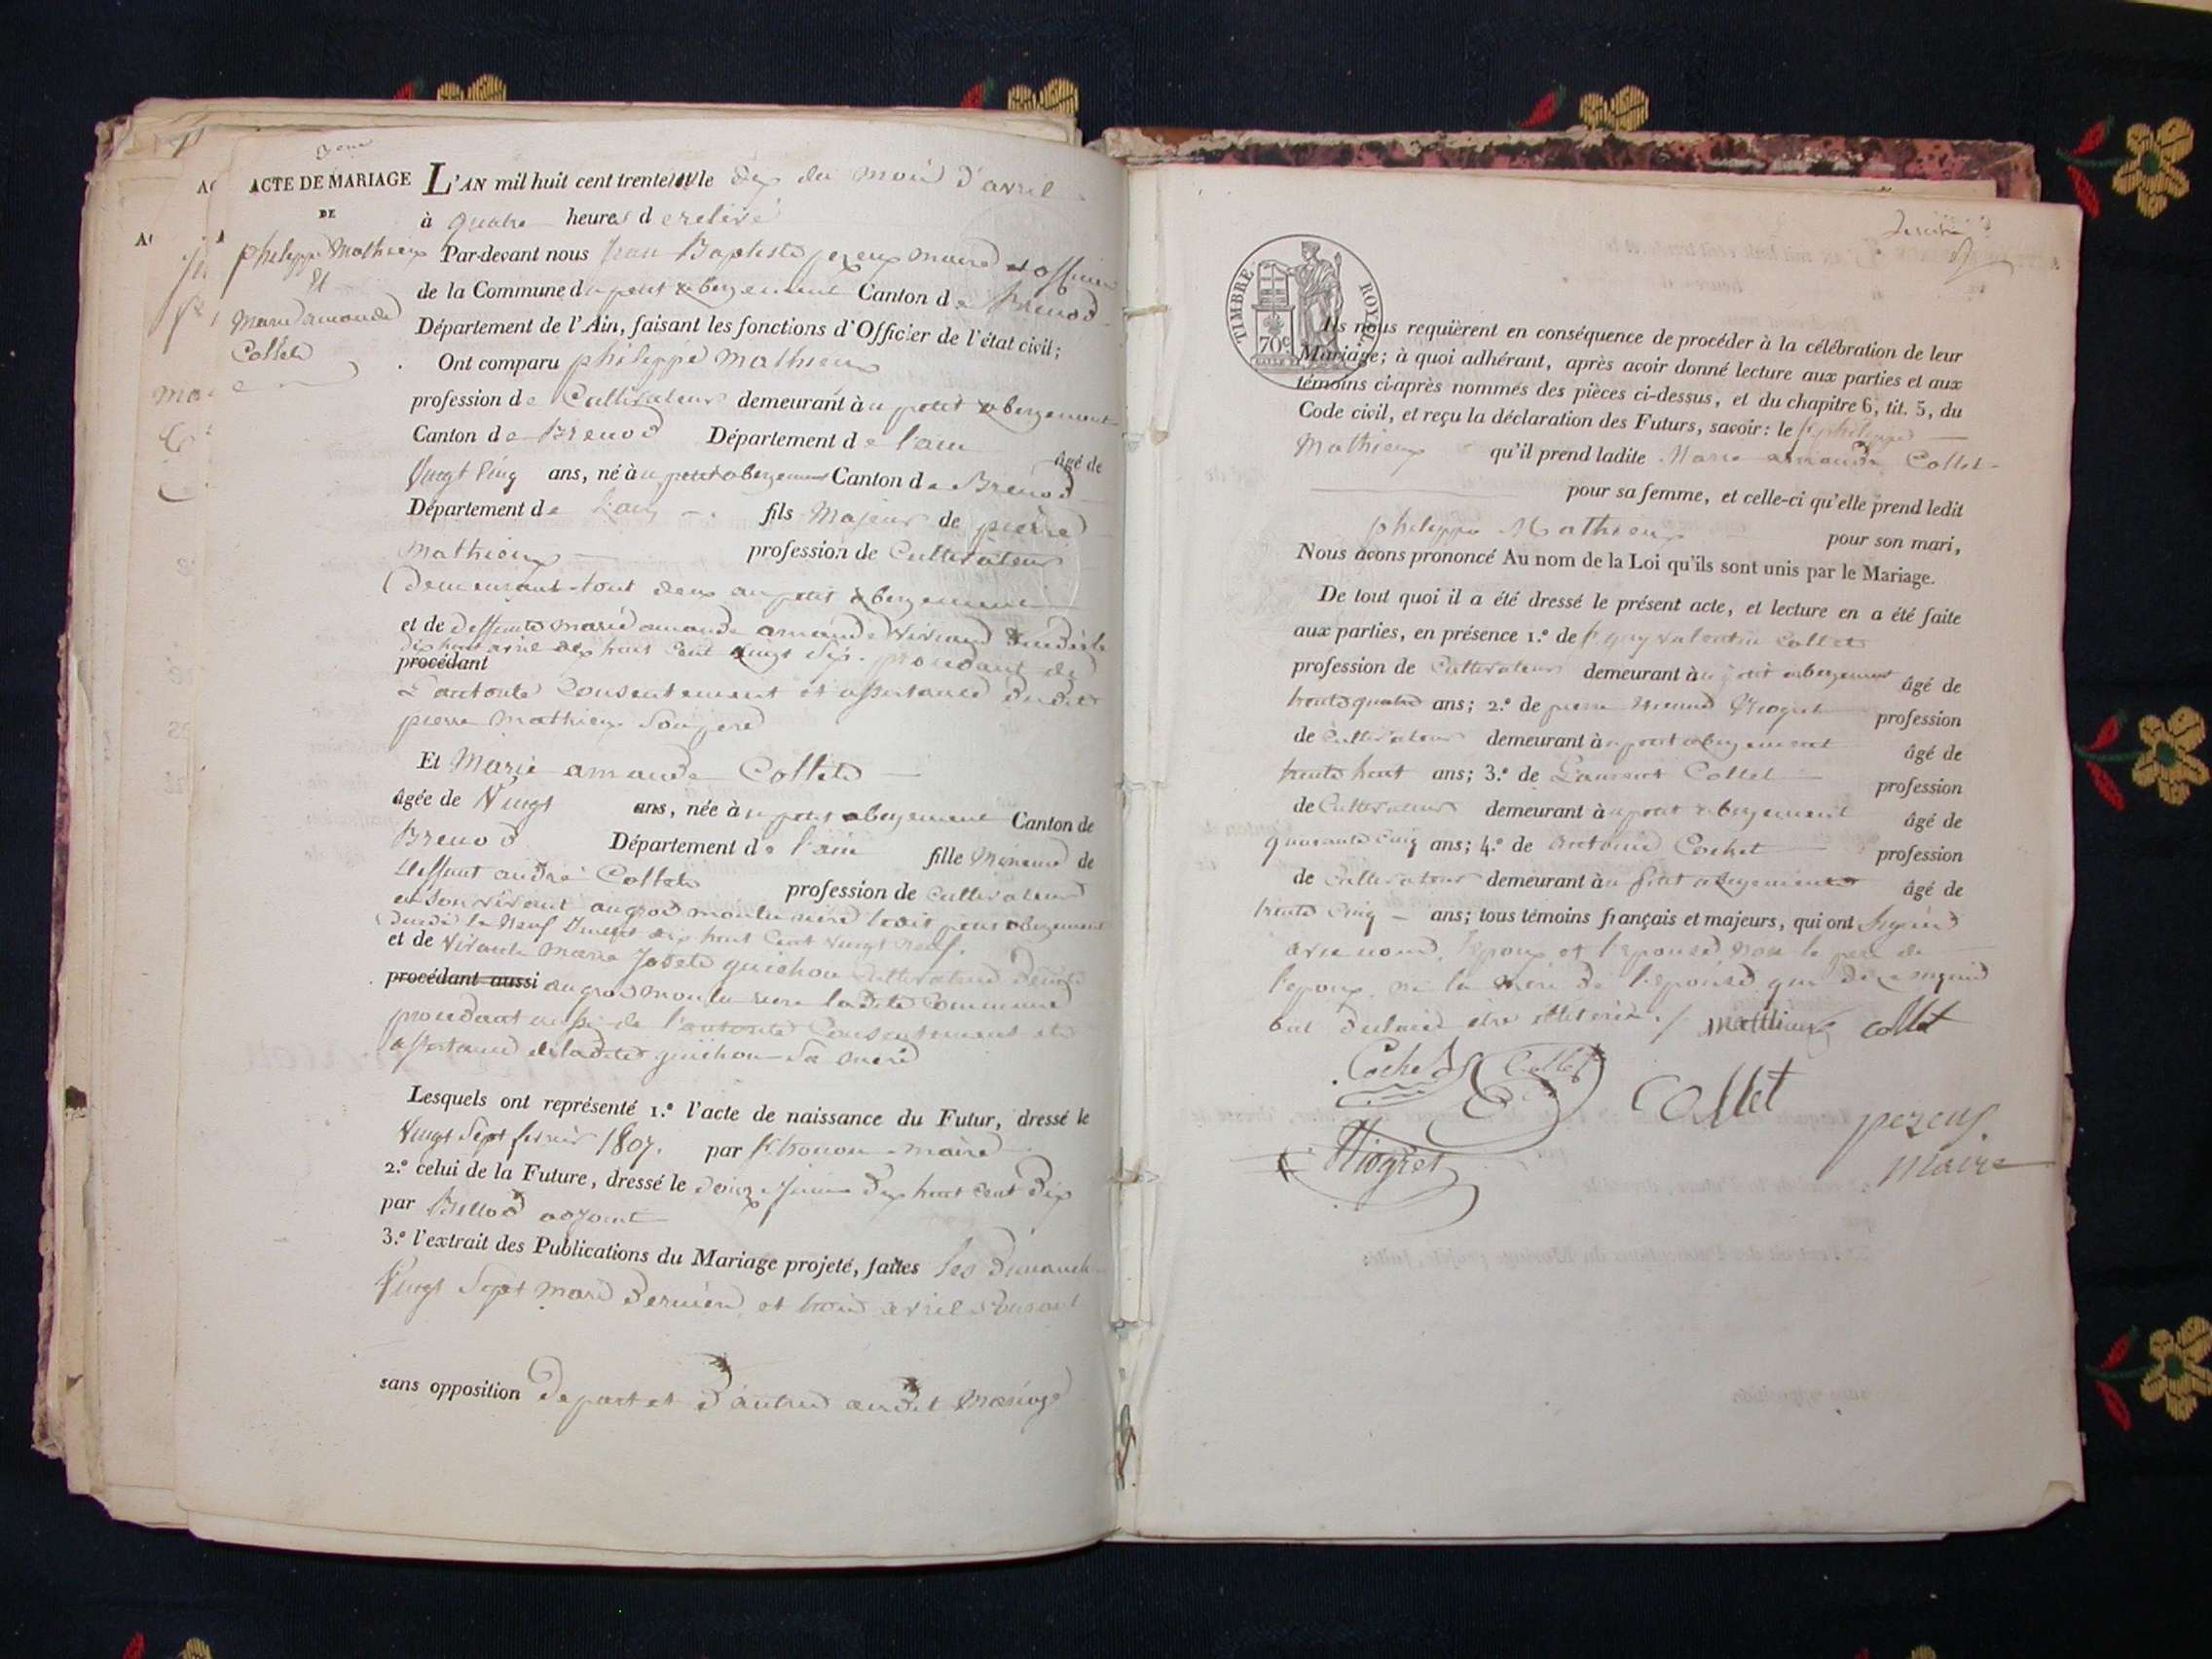 3eme
ACTE DE MARIAGE
DE
philippe Mathieux
Et
Marie amande
Collet
L'AN mil huit cent trente le dix du mois d'avril
à quatre heures d
Par-devant nous Jean Baptiste pereux maire et officier
de la Commune du petit abergement Canton de Brenod
Département de l'Ain, faisant les fonctions d'Officier de l'état civil;
Ont comparu philippe Mathieux
profession de Cultivateur demeurant à u petit abergement
Canton de Brenod Département de l'ain
âgé de
Vingt Cinq ans, né à u petit abergement Canton de Brenod
Département de L'ain fils Majeur de pierre
Mathieux profession de Cultivateur
Demeurant tout deux au petit abergement
et de deffunte marie amande
dix huit avril dix huit Cent vingt Six. procédant de
procédant
L'autorité Consentement et assistance dudit
pierre Mathieux Son pere
Et Marie amande Collet
âgée de Vingt ans, née à u petit abergement Canton de
Brenod Département de l'ain fille Mineure de
deffunt andré Collet profession de Cultivateur
en Son vivant au gros
le Neuf dix huit Cent vingt neuf.
et de vivante Marie Josete guichon
procédant aussi au gros ladite Commune
procédant aussi de l'autorité Consentement et
assistance de ladite guichon Sa mere
Lesquels ont représenté 1.º l'acte de naissance du Futur, dressé le
Vingt Sept fevrier 1807. par maire
2.º celui de la Future, dressé le dix huit Cent dix
par Billod adjoint
3.º l'extrait des Publications du Mariage projeté, faites les Dimanche
Vingt Sept Mars Dernier et trois avril Courant
sans opposition de part et d'autre audit Mariage
TIMBRE ROYAL
70c
Ils nous requièrent en conséquence de procéder à la célébration de leur
Mariage; à quoi adhérant, après avoir donné lecture aux parties et aux
témoins ci-après nommés des pièces ci-dessus, et du chapitre 6, tit. 5, du
Code civil, et reçu la déclaration des Futurs, savoir: le philippe
Mathieux qu'il prend ladite Marie amande Collet
pour sa femme, et celle-ci qu'elle prend ledit
philippe Mathieux pour son mari,
Nous avons prononcé Au nom de la Loi qu'ils sont unis par le Mariage.
De tout quoi il a été dressé le présent acte, et lecture en a été faite
aux parties, en présence 1.º de guy valentin Collet
profession de Cultivateur demeurant à u petit abergement âgé de
trente quatre ans; 2.º de pierre profession
de Cultivateur demeurant à u petit abergement âgé de
trente huit ans; 3.º de Laurent Collet profession
de Cultivateur demeurant à u petit abergement âgé de
quarante Cinq ans; 4.º de antoine Cochet profession
de Cultivateur demeurant à u petit abergement âgé de
trente Cinq ans; tous témoins français et majeurs, qui ont Signé
avec nous, l'epoux et l'epouse, non le pere de
l'epoux ni la mere de l'epouse qui de ce requis
ont Mathieux Collet
Cochet Collet Collet
pereux
Maire